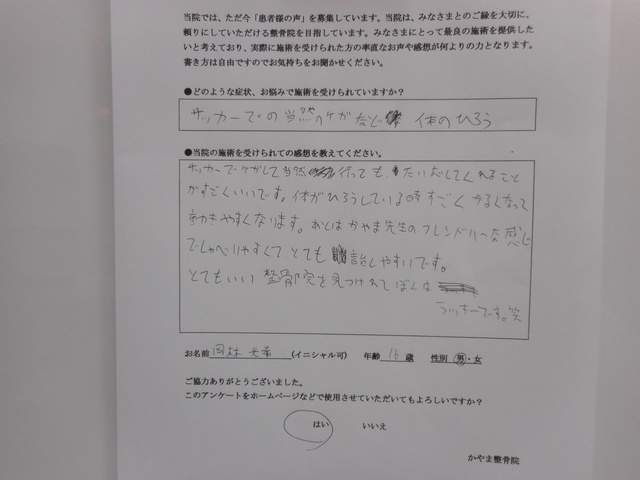 当院では、ただ今「患者様の声」を募集しています。当院は、みなさまとのご縁を大切に、
頼りにしていただける整骨院を目指しています。みなさまにとって最良の施術を提供した
いと考えており、実際に施術を受けられた方の率直なお声や感想が何よりの力となります。
書き方は自由ですのでお気持ちをお聞かせください。
●どのような症状、お悩みで施術を受けられていますか？
サッカーでの当然のケガなど 体のひろう
●当院の施術を受けられての感想を教えてください。
サッカーでケガして当然行っても、たい応してくれること
がすごくいいです。体がひろうしている時すごくかるくなって
動きやすくなります。あとはかやま先生のフレンドリーな感じ
でしゃべりやすくて、とても話しやすいです。
とてもいい整骨院を見つけれてぼくは
ラッキーです。笑
お名前 岡林 (イニシャル可) 年齢 16 歳 性別 男・女
ご協力ありがとうございました。
このアンケートをホームページなどで使用させていただいてもよろしいですか？
はい いいえ
かやま整骨院